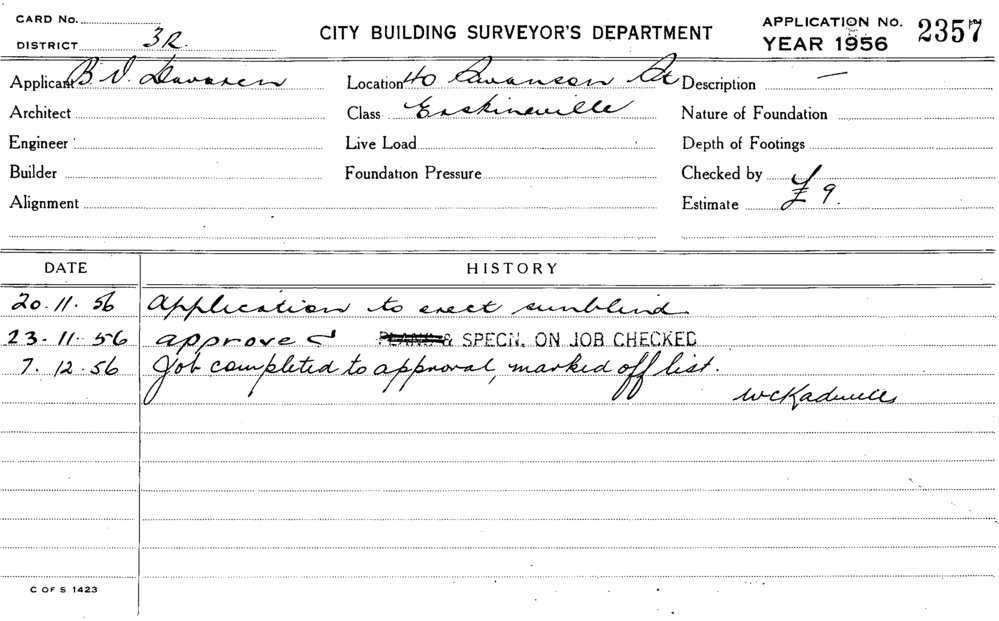 CARD No.
DISTRICT 3R.
CITY BUILDING SURVEYOR'S DEPARTMENT
APPLICATION NO. 2357
YEAR 1956
Applicant B. V. Location 40 Swanson St Description —
Architect Class Erskineville Nature of Foundation
Engineer Live Load Depth of Footings
Builder Foundation Pressure Checked by
Alignment Estimate £ 9.
DATE HISTORY
20. 11. 56 Application to erect sunblind.
23. 11. 56 approved & SPECN. ON JOB CHECKED
7. 12. 56 Job completed to approval, marked off list.
C OF S 1423